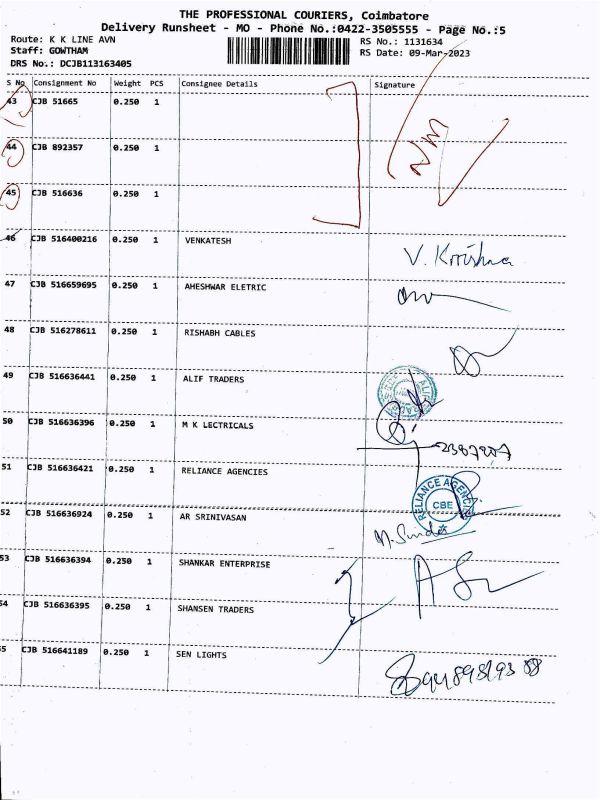 THE PROFESSIONAL COURIERS, Coimbatore
Delivery Runsheet - MO - Phone No.:0422-3505555 - Page No.:5
Route: K K LINE AVN
RS No.: 1131634
Staff: GOWTHAM
RS Date: 09-Mar-2023
DRS No.: DCJB113163405
S No Consignment No Weight PCS Consignee Details Signature
43 CJB 51665 0.250 1
44 CJB 892357 0.250 1
45 CJB 516636 0.250 1
46 CJB 516400216 0.250 1 VENKATESH V. Krrishna
47 CJB 516659695 0.250 1 AHESHWAR ELETRIC
48 CJB 516278611 0.250 1 RISHABH CABLES
49 CJB 516636441 0.250 1 ALIF TRADERS
50 CJB 516636396 0.250 1 M K LECTRICALS
51 CJB 516636421 0.250 1 RELIANCE AGENCIES
RELIANCE AGENCIES
CBE
52 CJB 516636924 0.250 1 AR SRINIVASAN
53 CJB 516636394 0.250 1 SHANKAR ENTERPRISE
54 CJB 516636395 0.250 1 SHANSEN TRADERS
55 CJB 516641189 0.250 1 SEN LIGHTS